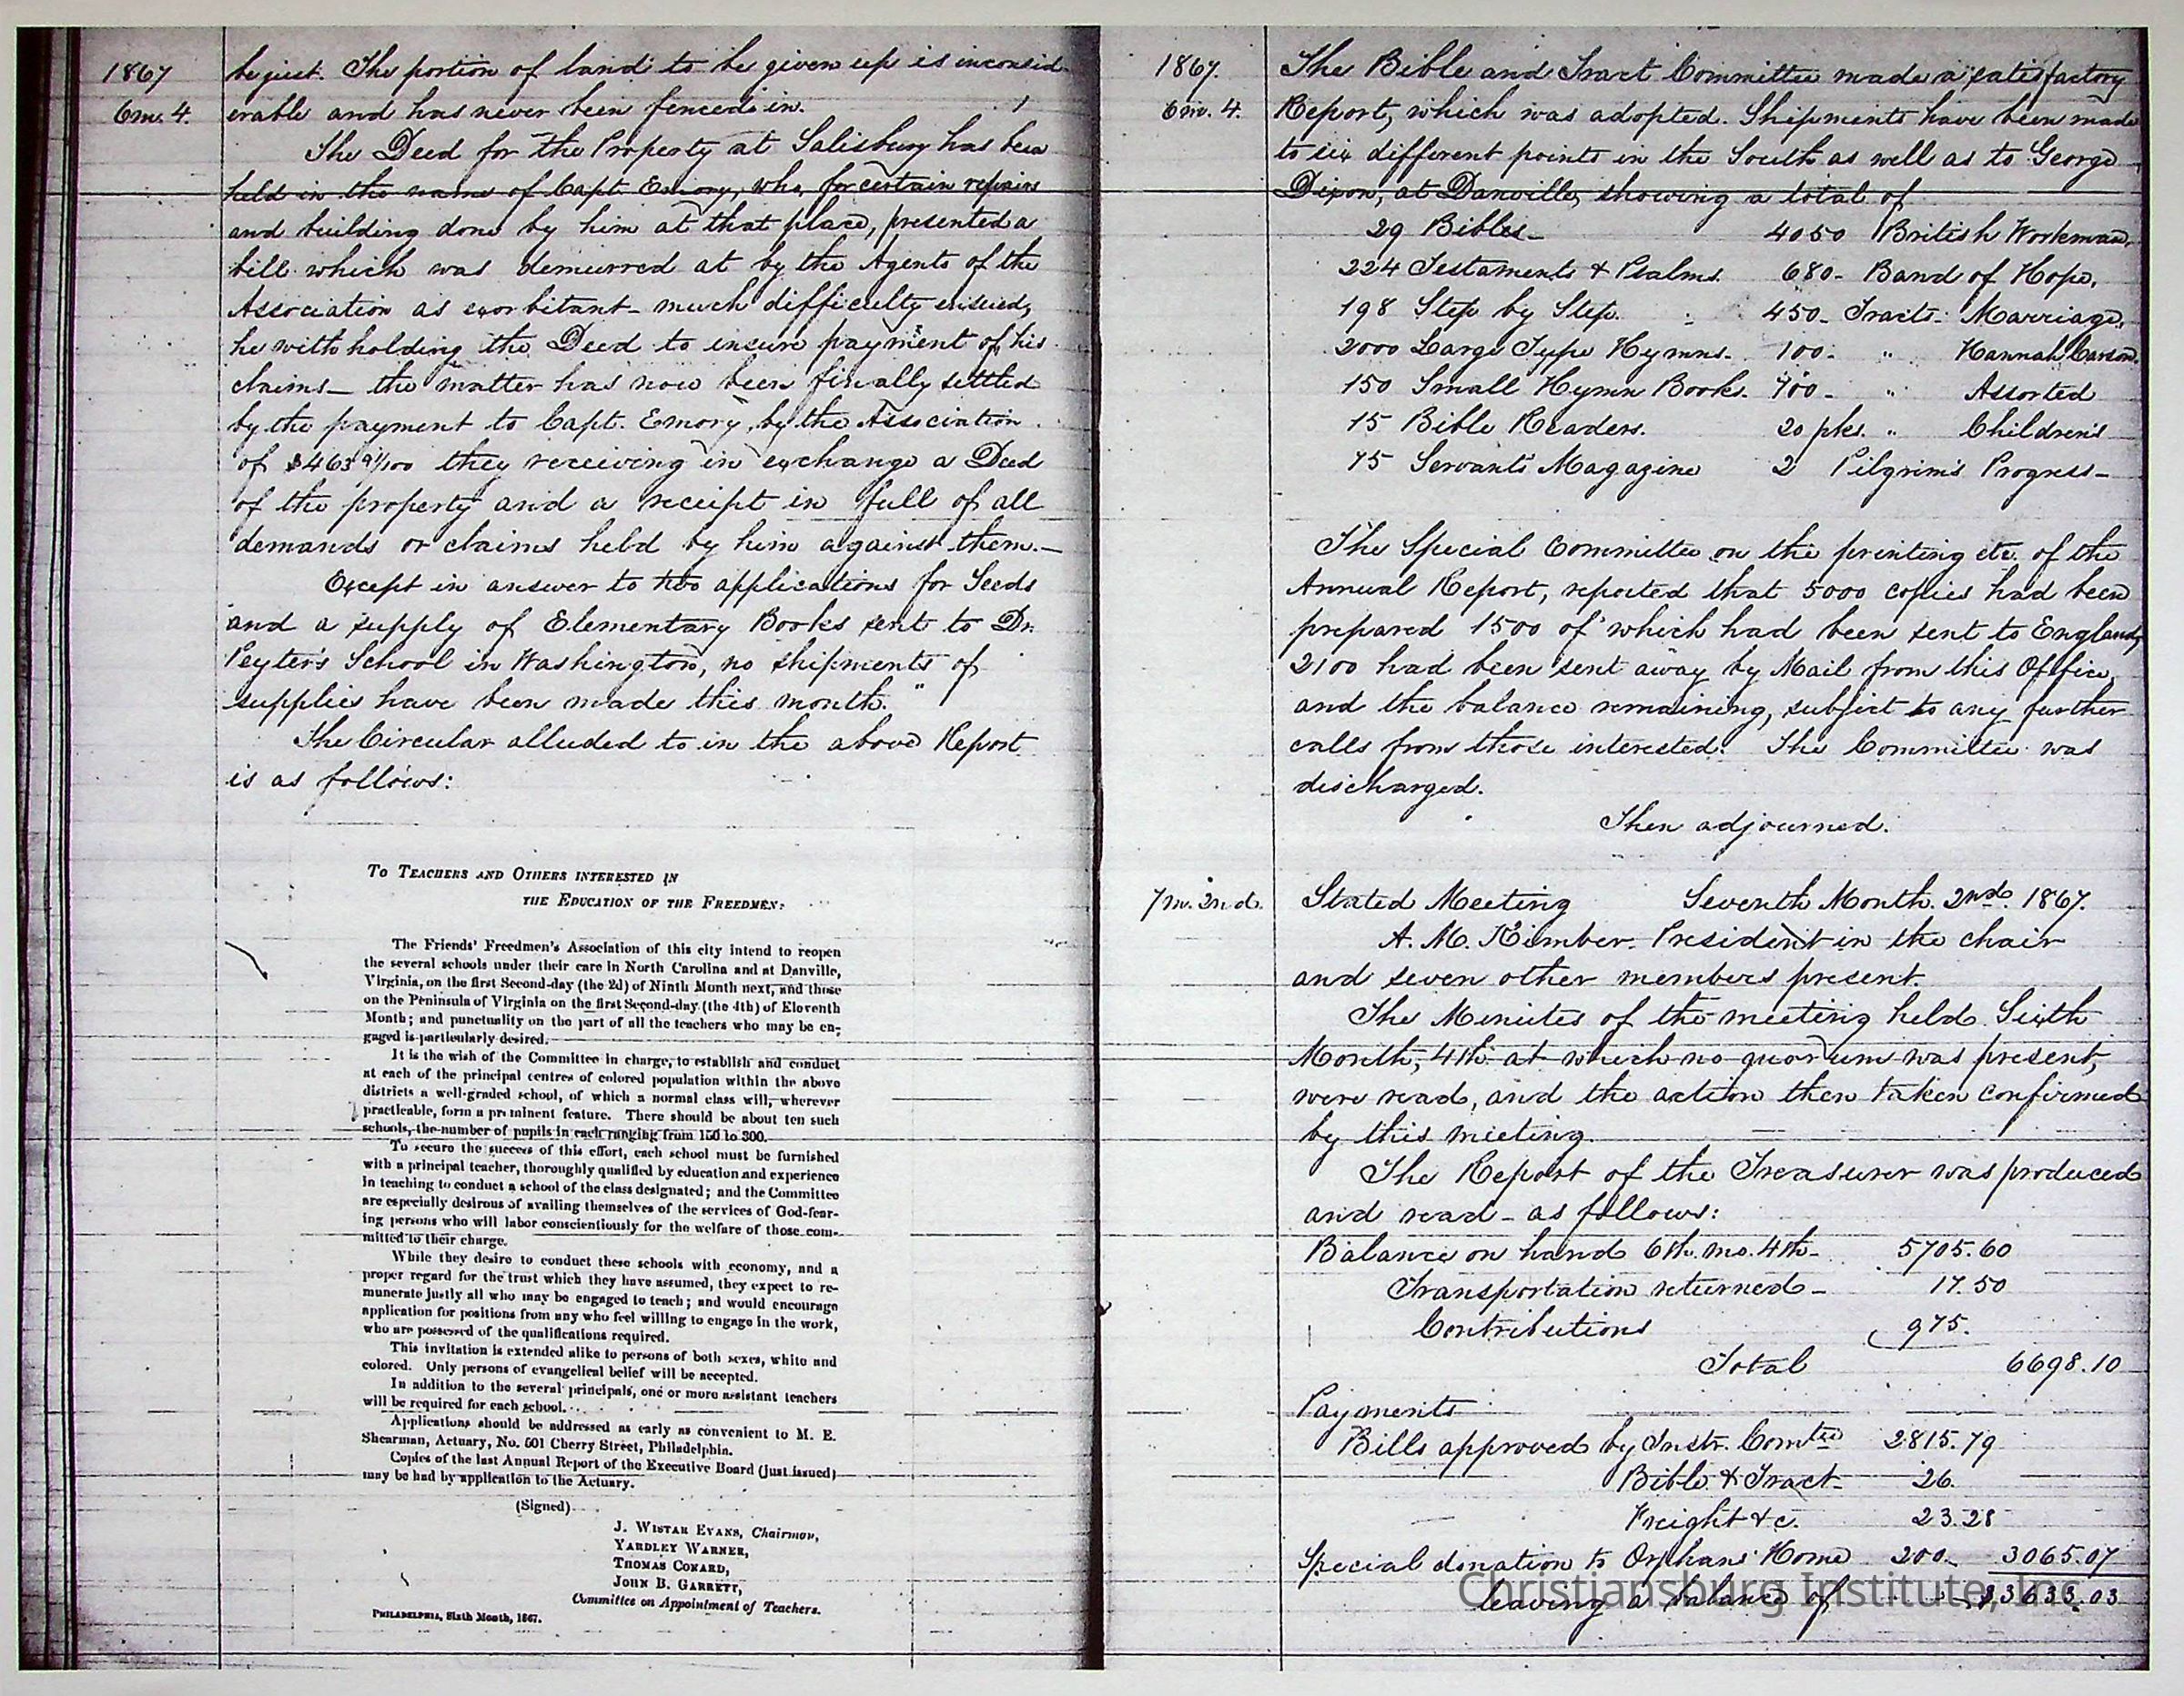 1867
6m. 4.
be just. The portion of land to be given up is inconsid-
erable and has never been fenced in.
The Deed for the Property at Salisbury has been
held in the name of Capt. Emory, who, for certain repairs
and building done by him at that place, presented a
bill which was demurred at by the Agents of the
Association as exorbitant - much difficulty ensued,
he withholding the Deed to insure payment of his
claims - the matter has now been finally settled
by the payment to Capt. Emory, by the Association
of $463 91/100 they receiving in exchange a Deed
of the property and a receipt in full of all
demands or claims held by him against them. -
Except in answer to two applications for Seeds
and a supply of Elementary Books sent to Dr.
Peyter's School in Washington, no shipments of
supplies have been made this month."
The Circular alluded to in the above Report
is as follows:
To Teachers and Others interested in
the Education of the Freedmen:
The Friends' Freedmen's Association of this city intend to reopen
the several schools under their care in North Carolina and at Danville,
Virginia, on the first Second-day (the 2d) of Ninth Month next, and those
on the Peninsula of Virginia on the first Second-day (the 4th) of Eleventh
Month; and punctuality on the part of all the teachers who may be en-
gaged is particularly desired.
It is the wish of the Committee in charge, to establish and conduct
at each of the principal centres of colored population within the above
districts a well-graded school, of which a normal class will, wherever
practicable, form a prominent feature. There should be about ten such
schools, the number of pupils in each ranging from 150 to 300.
To secure the success of this effort, each school must be furnished
with a principal teacher, thoroughly qualified by education and experience
in teaching to conduct a school of the class designated; and the Committee
are especially desirous of availing themselves of the services of God-fear-
ing persons who will labor conscientiously for the welfare of those com-
mitted to their charge.
While they desire to conduct these schools with economy, and a
proper regard for the trust which they have assumed, they expect to re-
munerate justly all who may be engaged to teach; and would encourage
application for positions from any who feel willing to engage in the work,
who are possessed of the qualifications required.
This invitation is extended alike to persons of both sexes, white and
colored. Only persons of evangelical belief will be accepted.
In addition to the several principals, one or more assistant teachers
will be required for each school.
Applications should be addressed as early as convenient to M. E.
Shearman, Actuary, No. 501 Cherry Street, Philadelphia.
Copies of the last Annual Report of the Executive Board (just issued)
may be had by application to the Actuary.
(Signed)
J. Wistar Evans, Chairman,
Yardley Warner,
Thomas Conard,
John B. Garrett,
Committee on Appointment of Teachers.
Philadelphia, Sixth Month, 1867.
1867.
6m. 4.
The Bible and Tract Committee made a satisfactory
Report, which was adopted. Shipments have been made
to six different points in the South as well as to George
Dixon, at Danville, showing a total of
29 Bibles - 4050 British Workman,
224 Testaments & Psalms. 680 - Band of Hope,
198 Step by Step. 450 - Tracts - Marriage,
2000 Large Type Hymns - 100 - " Hannah Carson.
150 Small Hymn Books. 700 - " Assorted
15 Bible Readers. 20 pks. " Children's
75 Servants' Magazine 2 Pilgrim's Progress -
The Special Committee on the printing etc. of the
Annual Report, reported that 5000 copies had been
prepared 1500 of which had been sent to England,
2100 had been sent away by Mail from this Office,
and the balance remaining, subject to any further
calls from those interested. The Committee was
discharged.
Then adjourned.
7m. 2nd.
Stated Meeting Seventh Month. 2nd. 1867.
A. M. Kimber. President in the chair
and seven other members present.
The Minutes of the meeting held Sixth
Month, 4th. at which no quorum was present,
were read, and the action then taken confirmed
by this meeting.
The Report of the Treasurer was produced
and read - as follows:
Balance on hand 6th. mo. 4th - 5705.60
Transportation returned - 17.50
Contributions 975.
Total 6698.10
Payments
Bills approved by Instr. Comtee 2815.79
Bible & Tract - 26.
Freight &c. 23.28
Special donation to Orphans' Home 200. 3065.07
leaving a balance of $3633.03
Christiansburg Institute, Inc.